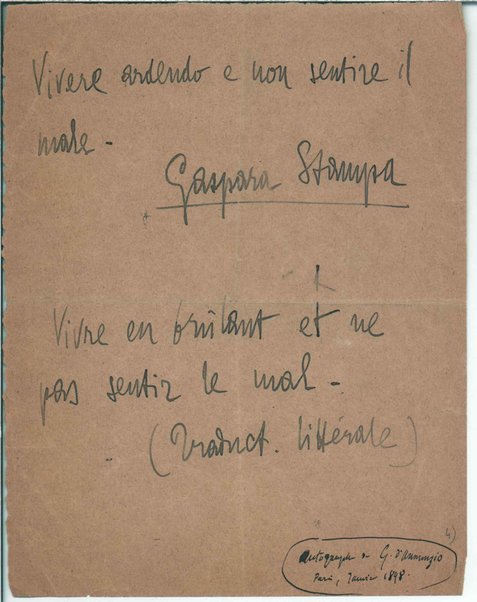 Vivere ardendo e non sentire il
male -
Gaspara Stampa
Vivre en brûlant et ne
pas sentir le mal -
(Traduct. littérale)
4)
Autographe de G. d'Annunzio
Paris, Janvier 1898.